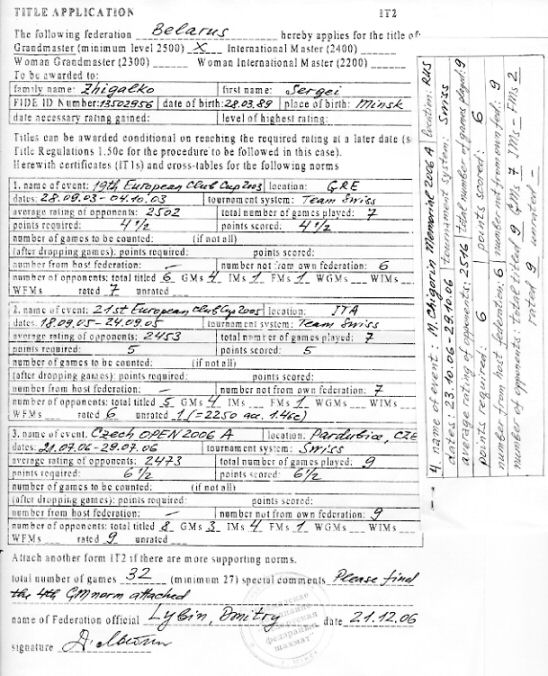 TITLE APPLICATION IT2
The following federation Belarus hereby applies for the title of
Grandmaster (minimum level 2500) X International Master (2400)
Woman Grandmaster (2300) Woman International Master (2200)
To be awarded to:
family name: Zhigalko first name: Sergei
FIDE ID Number: 13502956 date of birth: 28.03.89 place of birth: Minsk
date necessary rating gained: level of highest rating:
Titles can be awarded conditional on reaching the required rating at a later date (s
Title Regulations 1.50c for the procedure to be followed in this case).
Herewith certificates (IT1s) and cross-tables for the following norms
1. name of event: 19th European Club Cup 2003 location: GRE
dates: 28.09.03 - 04.10.03 tournament system: Team Swiss
average rating of opponents: 2502 total number of games played: 7
points required: 4 1/2 points scored: 4 1/2
number of games to be counted: (if not all)
(after dropping games) points required: points scored:
number from host federation: – number not from own federation: 6
number of opponents: total titled 6 GMs 4 IMs 1 FMs 1 WGMs WIMs
WFMs rated 7 unrated
2. name of event: 21st European Club Cup 2005 location: ITA
dates: 18.09.05 - 24.09.05 tournament system: Team Swiss
average rating of opponents: 2453 total number of games played: 7
points required: 5 points scored: 5
number of games to be counted: (if not all)
(after dropping games) points required: points scored:
number from host federation: – number not from own federation: 7
number of opponents: total titled 5 GMs 4 IMs FMs 1 WGMs WIMs
WFMs rated 6 unrated 1 (=2250 acc. 1.46c)
3. name of event: Czech OPEN 2006 A location: Pardubice, CZE
dates: 21.07.06 - 29.07.06 tournament system: Swiss
average rating of opponents: 2473 total number of games played: 9
points required: 6 1/2 points scored: 6 1/2
number of games to be counted: (if not all)
(after dropping games) points required: points scored:
number from host federation: – number not from own federation: 9
number of opponents: total titled 8 GMs 3 IMs 4 FMs 1 WGMs WIMs
WFMs rated 9 unrated
Attach another form IT2 if there are more supporting norms.
total number of games 32 (minimum 27) special comments Please find
the 4th GM norm attached
name of Federation official Lybin, Dmitry date 21.12.06
signature
4. name of event: M. Chigorin Memorial 2006 A location: RUS
dates: 23.10.06 - 29.10.06 tournament system: Swiss
average rating of opponents: 2516 total number of games played: 9
points required: 6 points scored: 6
number from host federation: 6 number not from own fed.: 9
number of opponents: total titled 9 GMs 7 IMs – FMs 2
rated 9 unrated –